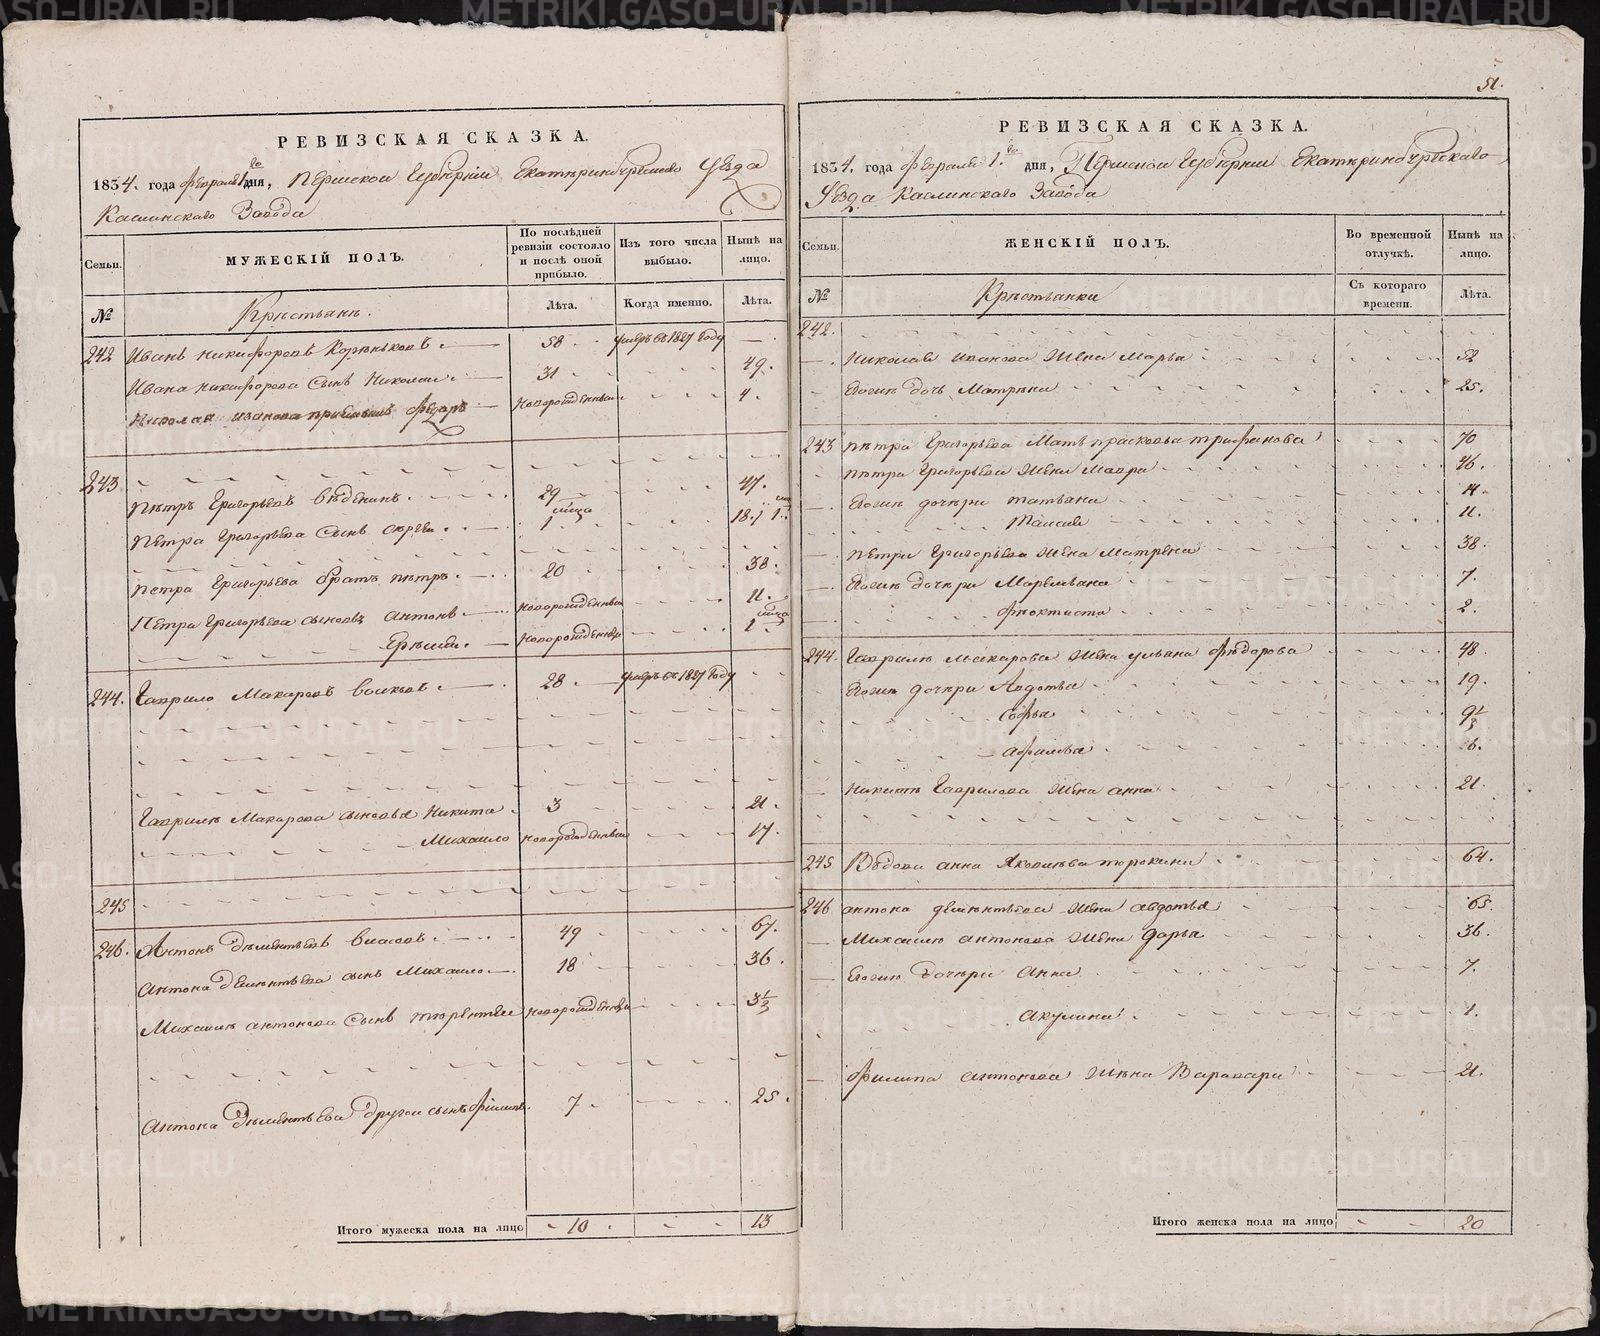 РЕВИЗСКАЯ СКАЗКА.
1834. года февраля 1го дня, Пермской Губернии Екатеринбургскаго Уезда
Каслинскаго Завода
Семьи.
МУЖЕСКІЙ ПОЛЪ.
По послѣдней ревизіи состояло и послѣ оной прибыло.
Изъ того числа выбыло.
Нынѣ на лицо.
№
Крестьянъ.
Лѣта.
Когда именно.
Лѣта.
242 Иванъ Никифоровъ 58 1827 году
Ивана Никифорова сынъ Николай 31 49.
Николая Иванова Федоръ новорожденный 4.
243
Петръ Григорьевъ 29 47.
Петра Григорьева сынъ Сергей 1 18.
Петра Григорьева братъ Петръ 20 38.
Петра Григорьева сыновья Антонъ новорожденный 11.
новорожденный 1
244. Гаврило Макаровъ 28 1827 году
Гаврилы Макарова сыновья Никита 3 21.
Михайло новорожденный 17.
245
246. Антонъ Дементьевъ Власовъ 49 67.
Антона Дементьева сынъ Михайло 18 36.
Михайлы Антонова сынъ Терентей новорожденный 3½
Антона Дементьева другой сынъ Филипъ 7 25.
Итого мужеска пола на лицо 10 13
51.
РЕВИЗСКАЯ СКАЗКА.
1834. года февраля 1.го дня, Пермской Губернии Екатеринбургскаго
Уезда Каслинскаго Завода
Семьи.
ЖЕНСКІЙ ПОЛЪ.
Во временной отлучкѣ.
Нынѣ на лицо.
№
Крестьянки
Съ котораго времени.
Лѣта.
242.
Николая Иванова жена Марья 52
Евоная дочь Матрена 25.
243 Петра Григорьева мать Прасковья Трифанова 70
Петра Григорьева жена Мавра 46.
дочери Татьяна 14.
Таисья 11.
Петра Григорьева жена Матрена 38.
дочери Маремьяна 7.
Феоктиста 2.
244. Гаврилы Макарова жена Ульяна Федорова 48.
дочери Авдотья 19.
Софья
Афимья 6.
Никиты Гаврилова жена Анна 21.
245 Вдова Анна Яковлева 64.
246 Антона Дементьева жена Авдотья 65.
Михайлы Антонова жена Дарья 36.
дочери Анна 7.
Акулина 1.
Филипа Антонова жена Варвара 21.
Итого женска пола на лицо 20
METRIKI.GASO-URAL.RU